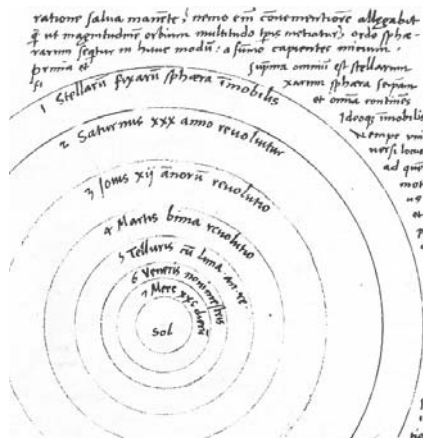 ratione salva manēte, nemo em̄ cōvenientiorē allegabit
q̄ ut magnitudinē orbium multitudo tp̄is metiatur, ordo sphæ-
rarum seqtur in hunc modū: a sum̄o capientes initium.
prima et suprema omniū est stellarum
fi xarum sphæra seipsam
et omnia continēs
Ideoque īmobilis
Nempe uni
versi locus
ad quē
mot
us
et
1 Stellarū fixarū sphæra īmobilis
2 Saturnus xxx anno revoluitur
3 Jovis xij annorū revolutio
4 Martis bima revolutio
5 Telluris cū luna an. re.
6 Veneris nonimestris
7 Merc xxc dierū
Sol